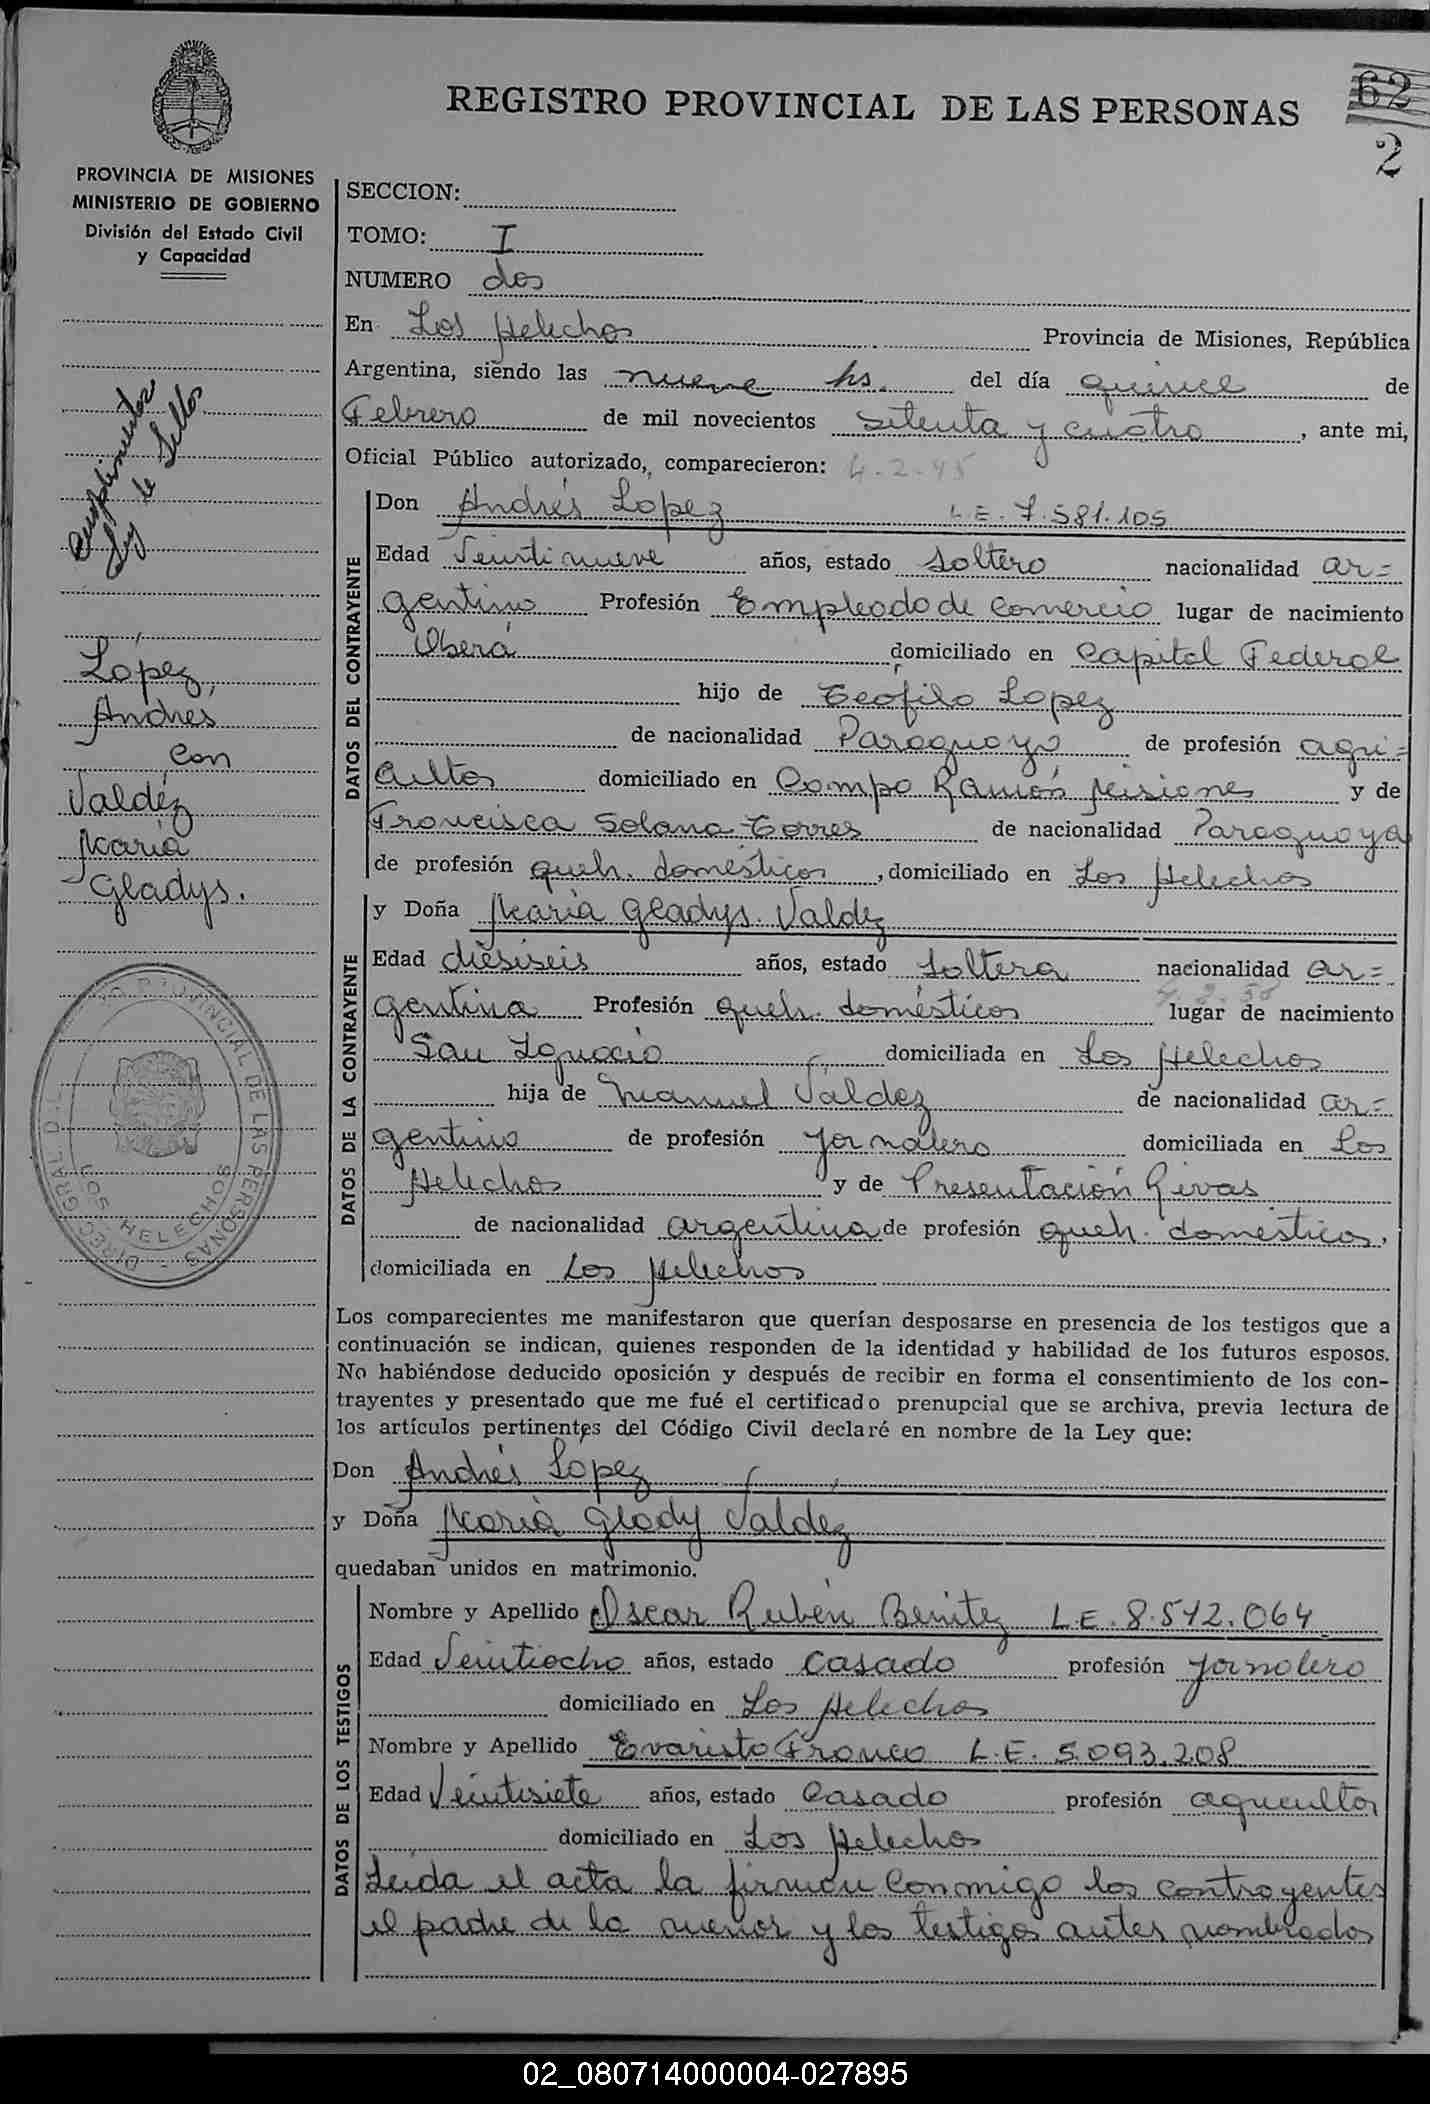 REGISTRO PROVINCIAL DE LAS PERSONAS
62
2
PROVINCIA DE MISIONES
MINISTERIO DE GOBIERNO
División del Estado Civil
y Capacidad
cumplimentar
Ley de Sellos
López,
Andrés
con
Valdéz
María
Gladys.
DIREC. GRAL DEL REGISTRO PROVINCIAL DE LAS PERSONAS
LOS HELECHOS
SECCION:
TOMO: I
NUMERO dos
En Los Helechos Provincia de Misiones, República
Argentina, siendo las nueve hs. del día quince de
Febrero de mil novecientos setenta y cuatro, ante mi,
Oficial Público autorizado, comparecieron: 4-2-45
DATOS DEL CONTRAYENTE
Don Andrés Lopez L.E. 7.581.105
Edad Veintinueve años, estado soltero nacionalidad ar=
gentino Profesión Empleado de Comercio lugar de nacimiento
Oberá domiciliado en Capital Federal
hijo de Teofilo Lopez
de nacionalidad Paraguayo de profesión agri=
cultor domiciliado en Campo Ramón Misiones y de
Francisca Solana Torres de nacionalidad Paraguaya
de profesión queh. domésticos, domiciliado en Los Helechos
DATOS DE LA CONTRAYENTE
y Doña María Gladys Valdez
Edad diesiseis años, estado Soltera nacionalidad ar=
gentina Profesión queh. domésticos lugar de nacimiento
San Ignacio domiciliada en Los Helechos
hija de Manuel Valdez de nacionalidad ar=
gentino de profesión jornalero domiciliada en Los
Helechos y de Presentación Rivas
de nacionalidad argentina de profesión queh. domésticos,
domiciliada en Los Helechos
Los comparecientes me manifestaron que querían desposarse en presencia de los testigos que a
continuación se indican, quienes responden de la identidad y habilidad de los futuros esposos.
No habiéndose deducido oposición y después de recibir en forma el consentimiento de los con-
trayentes y presentado que me fué el certificado prenupcial que se archiva, previa lectura de
los artículos pertinentes del Código Civil declaré en nombre de la Ley que:
Don Andrés Lopez
y Doña María Glady Valdez
quedaban unidos en matrimonio.
DATOS DE LOS TESTIGOS
Nombre y Apellido Oscar Rubén Benitez L.E. 8.512.064
Edad Veintiocho años, estado casado profesión jornalero
domiciliado en Los Helechos
Nombre y Apellido Evaristo Franco L.E. 5.093.208
Edad Veintisiete años, estado Casado profesión agricultor
domiciliado en Los Helechos
Leida el acta la firman conmigo los contrayentes
el padre de la menor y los testigos antes nombrados
02_080714000004-027895